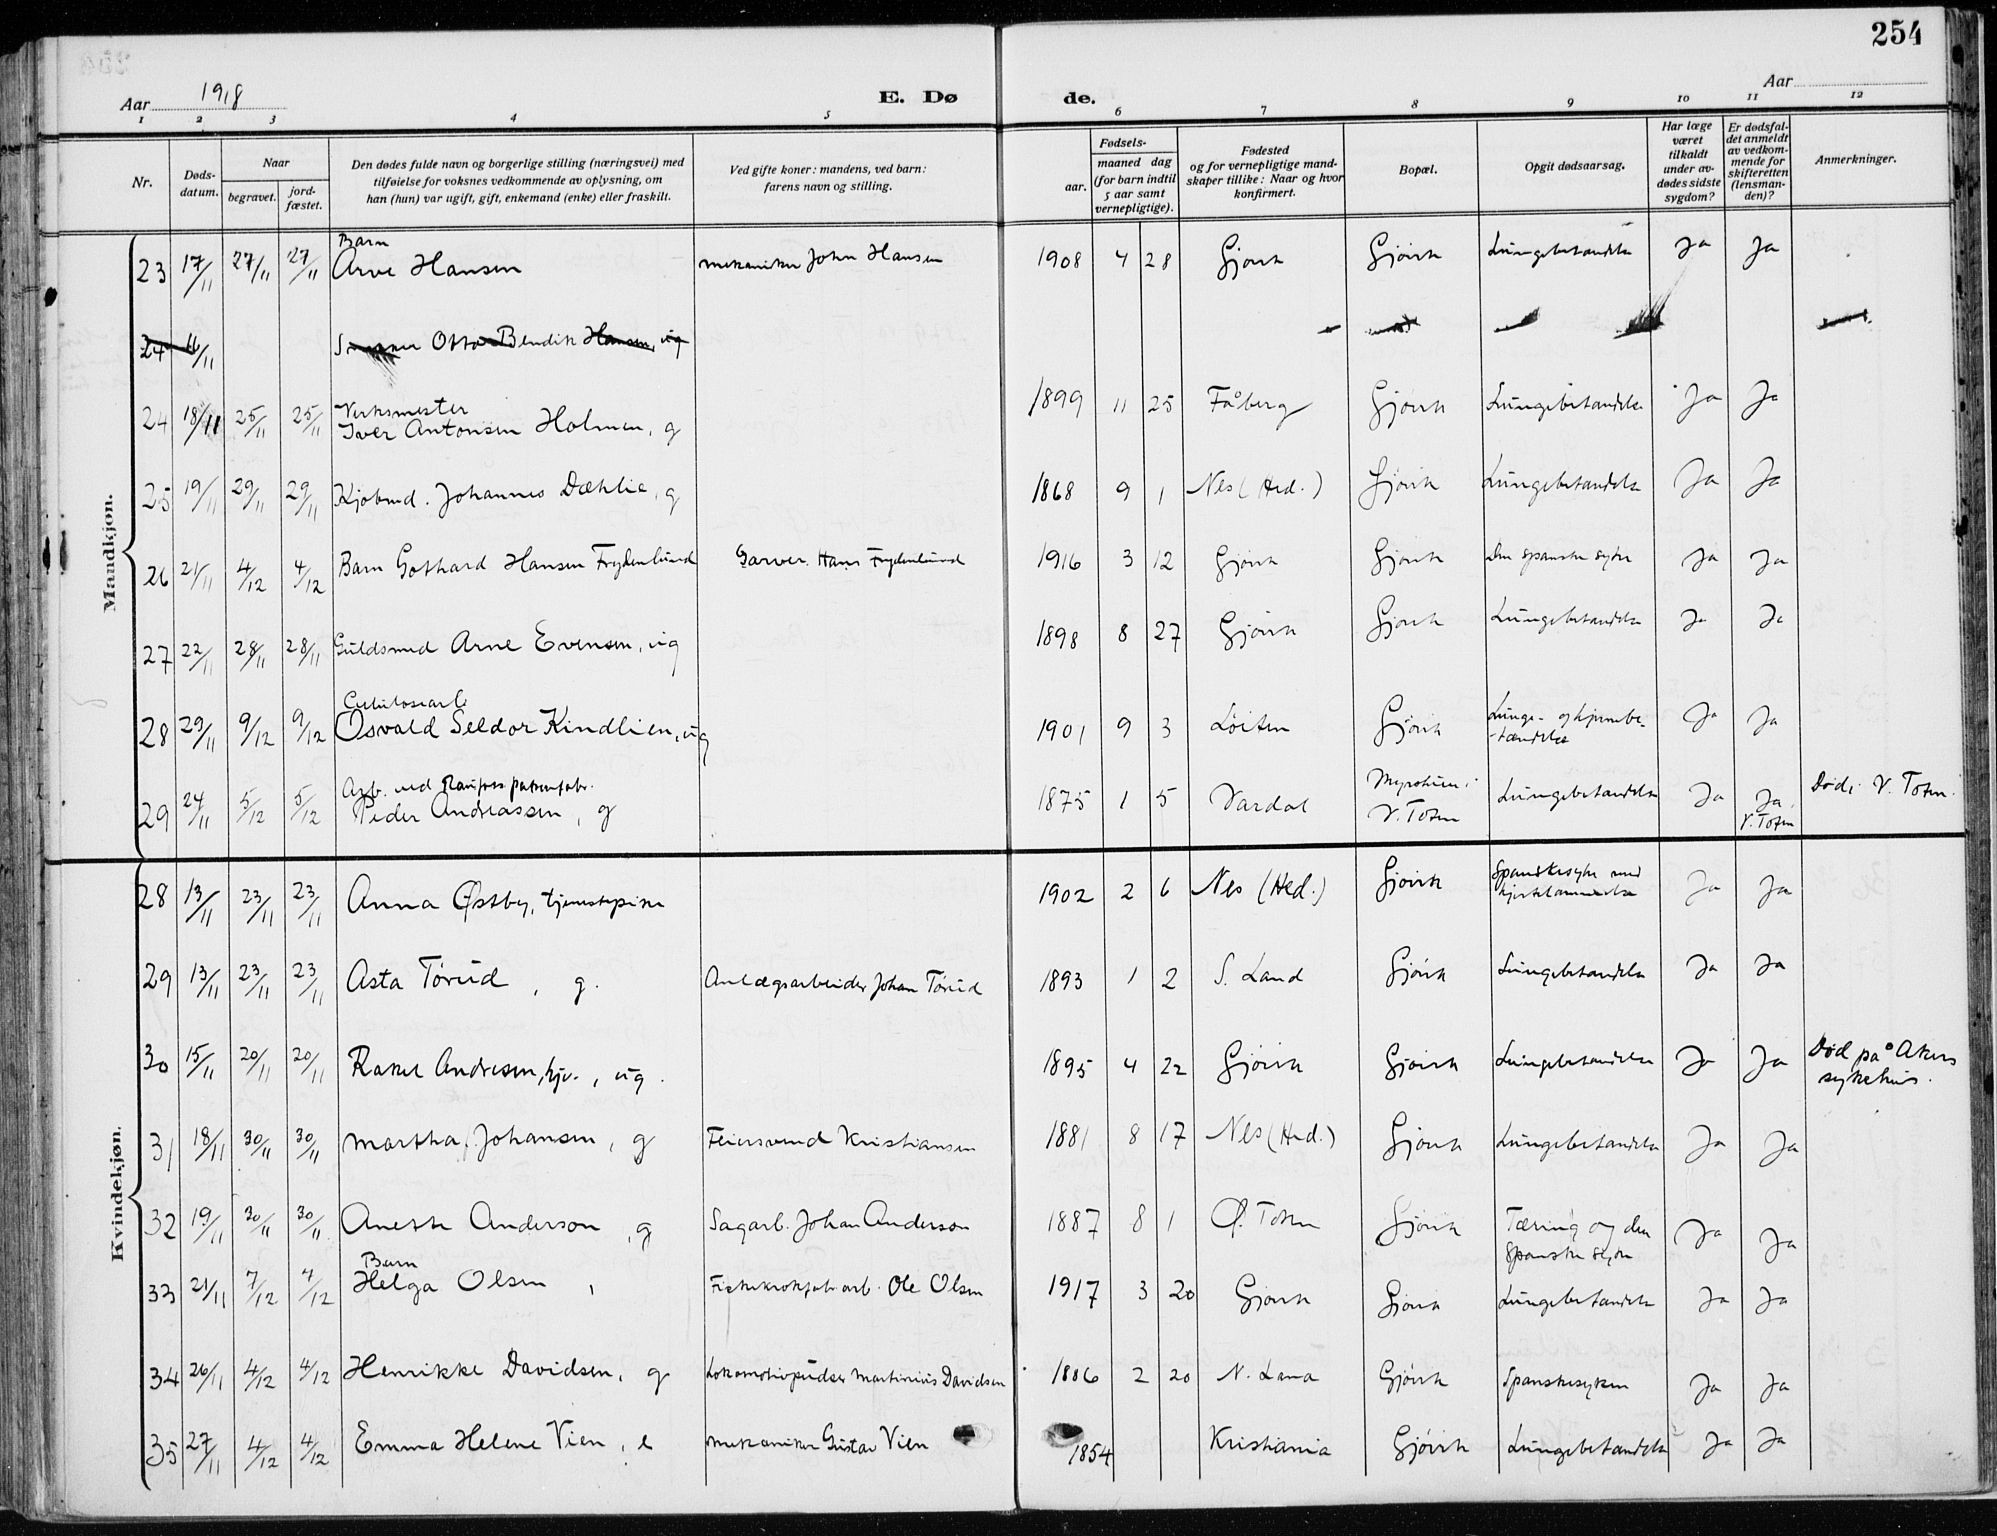 254
Aar 1918
E. Dø
de.
Aar
1 2 3 4 5 6 7 8 9 10 11 12
Nr.
Døds-
datum.
Naar
begravet.
jord-
fæstet.
Den dødes fulde navn og borgerlige stilling (næringsvei) med
tilføielse for voksnes vedkommende av oplysning, om
han (hun) var ugift, gift, enkemand (enke) eller fraskilt.
Ved gifte koner: mandens, ved barn:
farens navn og stilling.
Fødsels-
aar.
maaned dag
(for barn indtil
5 aar samt
vernepligtige).
Fødested
og for vernepligtige mand-
skaper tillike: Naar og hvor
konfirmert.
Bopæl.
Opgit dødsaarsag.
Har læge
været
tilkaldt
under av-
dødes sidste
sygdom?
Er dødsfal-
det anmeldt
av vedkom-
mende for
skifteretten
(lensman-
den)?
Anmerkninger.
Mandkjøn.
Barn
23 17/11 27/11 27/11 Arve Hansen mekaniker John Hansen 1908 4 28 Gjøvik Gjøvik Lungebetændelse Ja Ja
24 16/11 Otto Bendik Hansen, ug
Verksmester
24 18/11 25/11 25/11 Iver Antonsen Holmen, g 1899 11 25 Fåberg Gjøvik Lungebetændelse Ja Ja
25 19/11 29/11 29/11 Kjøbmd. Johannes Dæhlie, g 1868 9 1 Nes (Hed.) Gjøvik Lungebetændelse Ja Ja
26 21/11 4/12 4/12 Barn Gothard Hansen Frydenlund Garver Hans Frydenlund 1916 3 12 Gjøvik Gjøvik Den spanske syke Ja Ja
27 22/11 28/11 28/11 Guldsmed Arne Evensen, ug 1898 8 27 Gjøvik Gjøvik Lungebetændelse Ja Ja
Cellulosearb.
28 29/11 9/12 9/12 Osvald Seldor Kindlien, ug 1901 9 3 Løiten Gjøvik Lunge- og hjernebe-
-tændelse Ja Ja
Arb. ved Raufoss patronfabr.
29 24/11 5/12 5/12 Peder Andreassen, g 1875 1 5 Vardal V. Toten Lungebetændelse Ja Ja, V. Toten Død i V. Toten.
Kvindekjøn.
28 13/11 23/11 23/11 Anna Østby, tjenestepike 1902 2 6 Nes (Hed.) Gjøvik Spanskesyke med
hjertelammelse Ja Ja
29 13/11 23/11 23/11 Asta Tørud, g. Anlægsarbeider Johan Tørud 1893 1 2 S. Land Gjøvik Lungebetændelse Ja Ja
30 15/11 20/11 20/11 Rakel Andresen, hjv., ug. 1895 4 22 Gjøvik Gjøvik Lungebetændelse Ja Ja Død på Akers
sykehus.
31 18/11 30/11 30/11 Martha Johansen, g Feiersvend Kristiansen 1881 8 17 Nes (Hed.) Gjøvik Lungebetændelse Ja Ja
32 19/11 30/11 30/11 Anette Anderson, g Sagarb. Johan Anderson 1887 8 1 Ø. Toten Gjøvik Tæring og den
spanske syke Ja Ja
Barn
33 21/11 7/12 7/12 Helga Olsen, Fiskekrokfabr.arb. Ole Olsen 1917 3 20 Gjøvik Gjøvik Lungebetændelse Ja Ja
34 26/11 4/12 4/12 Henrikke Davidsen, g Lokomotivpudser Martinius Davidsen 1886 2 20 N. Land Gjøvik Spanskesyken Ja Ja
35 27/11 4/12 4/12 Emma Helene Vien, e mekaniker Gustav Vien 1854 Kristiania Gjøvik Lungebetændelse Ja Ja